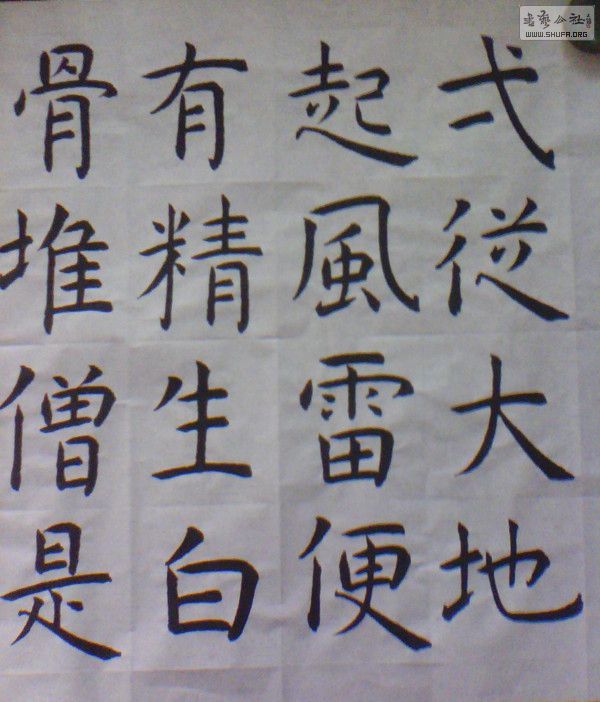 弌従大地
起風雷便
有精生白
骨堆僧是
书艺公社
WWW.SHUFA.ORG